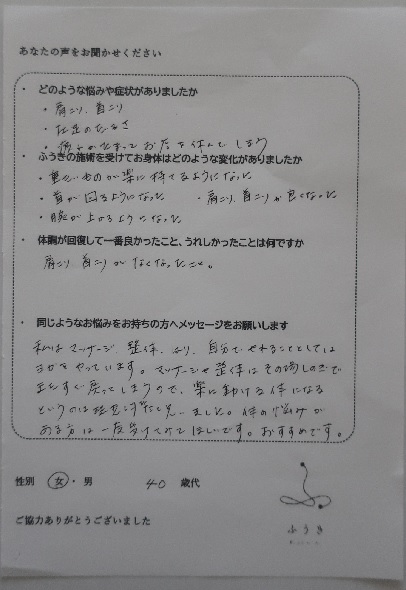 あなたの声をお聞かせください
・ どのような悩みや症状がありましたか
・肩こり、首こり
・手足のだるさ
・疲れがたまってお店を休んでしまう
・ ふうきの施術を受けてお身体はどのような変化がありましたか
・重いものが楽に持てるようになった
・首が回るようになった ・肩こり、首こりが良くなった
・腕が上がるようになった
・ 体調が回復して一番良かったこと、うれしかったことは何ですか
肩こり、首こりがなくなったこと。
・ 同じようなお悩みをお持ちの方へメッセージをお願いします
私はマッサージ、整体、自分でやれることとしては
ヨガをやっています。マッサージや整体はその場しのぎで
またすぐ戻ってしまうので、楽に動ける体になる
というのは と思いました。体の悩みが
ある方は一度受けてみてほしいです。おすすめです。
性別 女・男 40 歳代
ご協力ありがとうございました
ふうき